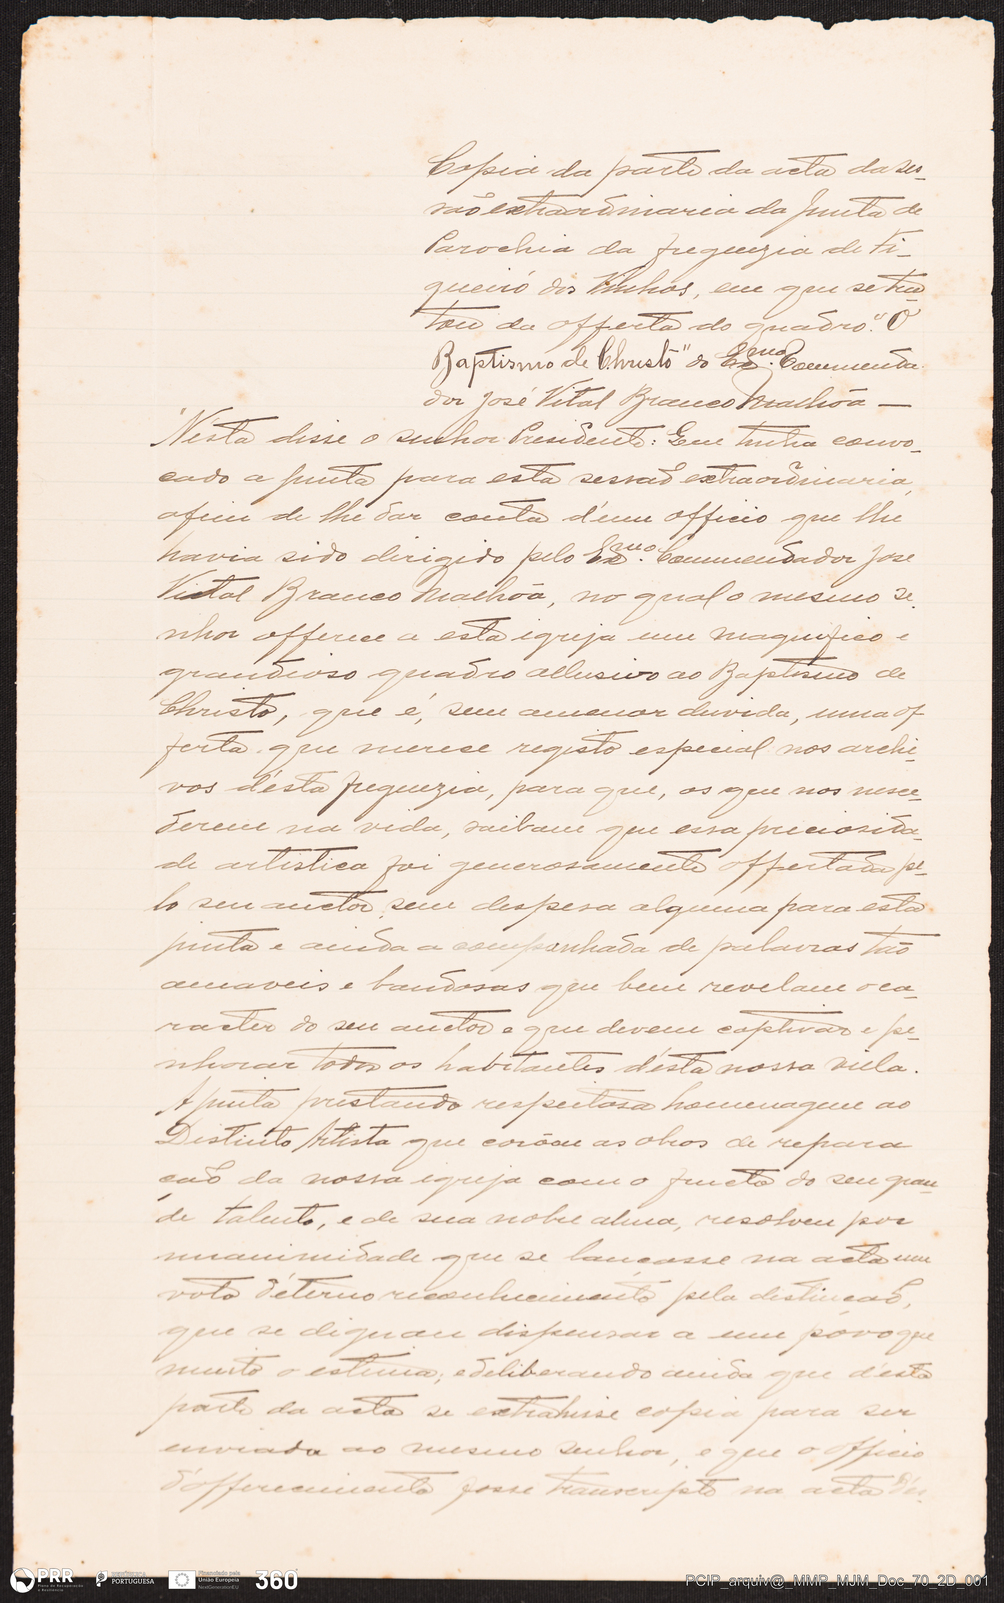 Copia da parte da acta da ses-
são extraordinaria da Junta de
Parochia da freguezia de Fi-
gueiró dos Vinhos, em que se tra-
tou da offerta do quadro "O
Baptismo de Christo" do Exmo. Commenda-
dor José Vital Branco Malhôa —
"Nesta disse o senhor Presidente: Que tinha convo-
cado a Junta para esta sessaõ extraordinaria,
afim de lhe dar conta d'um officio que lhe
havia sido dirigido pelo Exmo. Commendador José
Vital Branco Malhôa, no qual o mesmo se-
nhor offerece a esta igreja um magnifico e
grandioso quadro allusivo ao Baptismo de
Christo, que é, sem a menor duvida, uma of-
ferta que merece registo especial nos archi-
vos d'esta freguezia, para que, os que nos succe-
derem na vida, saibam que essa preciosida-
de artistica foi generosamente offertada pe-
lo seu auctor, sem despesa alguma para esta
junta e ainda acompanhada de palavras tão
amaveis e bondosas que bem revelam o ca-
racter do seu auctor e que devem captivar e pe-
nhorar todos os habitantes d'esta nossa villa.
A junta prestando respeitosa homenagem ao
Distincto Artista que corôou as obras de repara
çaõ da nossa igreja com o fructo do seu gran-
de talento, e de sua nobre alma, resolveu por
unanimidade que se lançasse na acta um
voto d'eterno reconhecimento pela distincaõ,
que se dignou dispensar a um povo que
muito o estima, e deliberando ainda que d'esta
parte da acta se extrahisse copia para ser
enviada ao mesmo senhor, e que o officio
d'offerecimento fosse transcripto na acta d'es-
PRR
Plano de Recuperação
e Resiliência
REPÚBLICA
PORTUGUESA
Financiado pela
União Europeia
NextGenerationEU
360
PCIP_arquiv@_MMP_MJM_Doc_70_2D_001